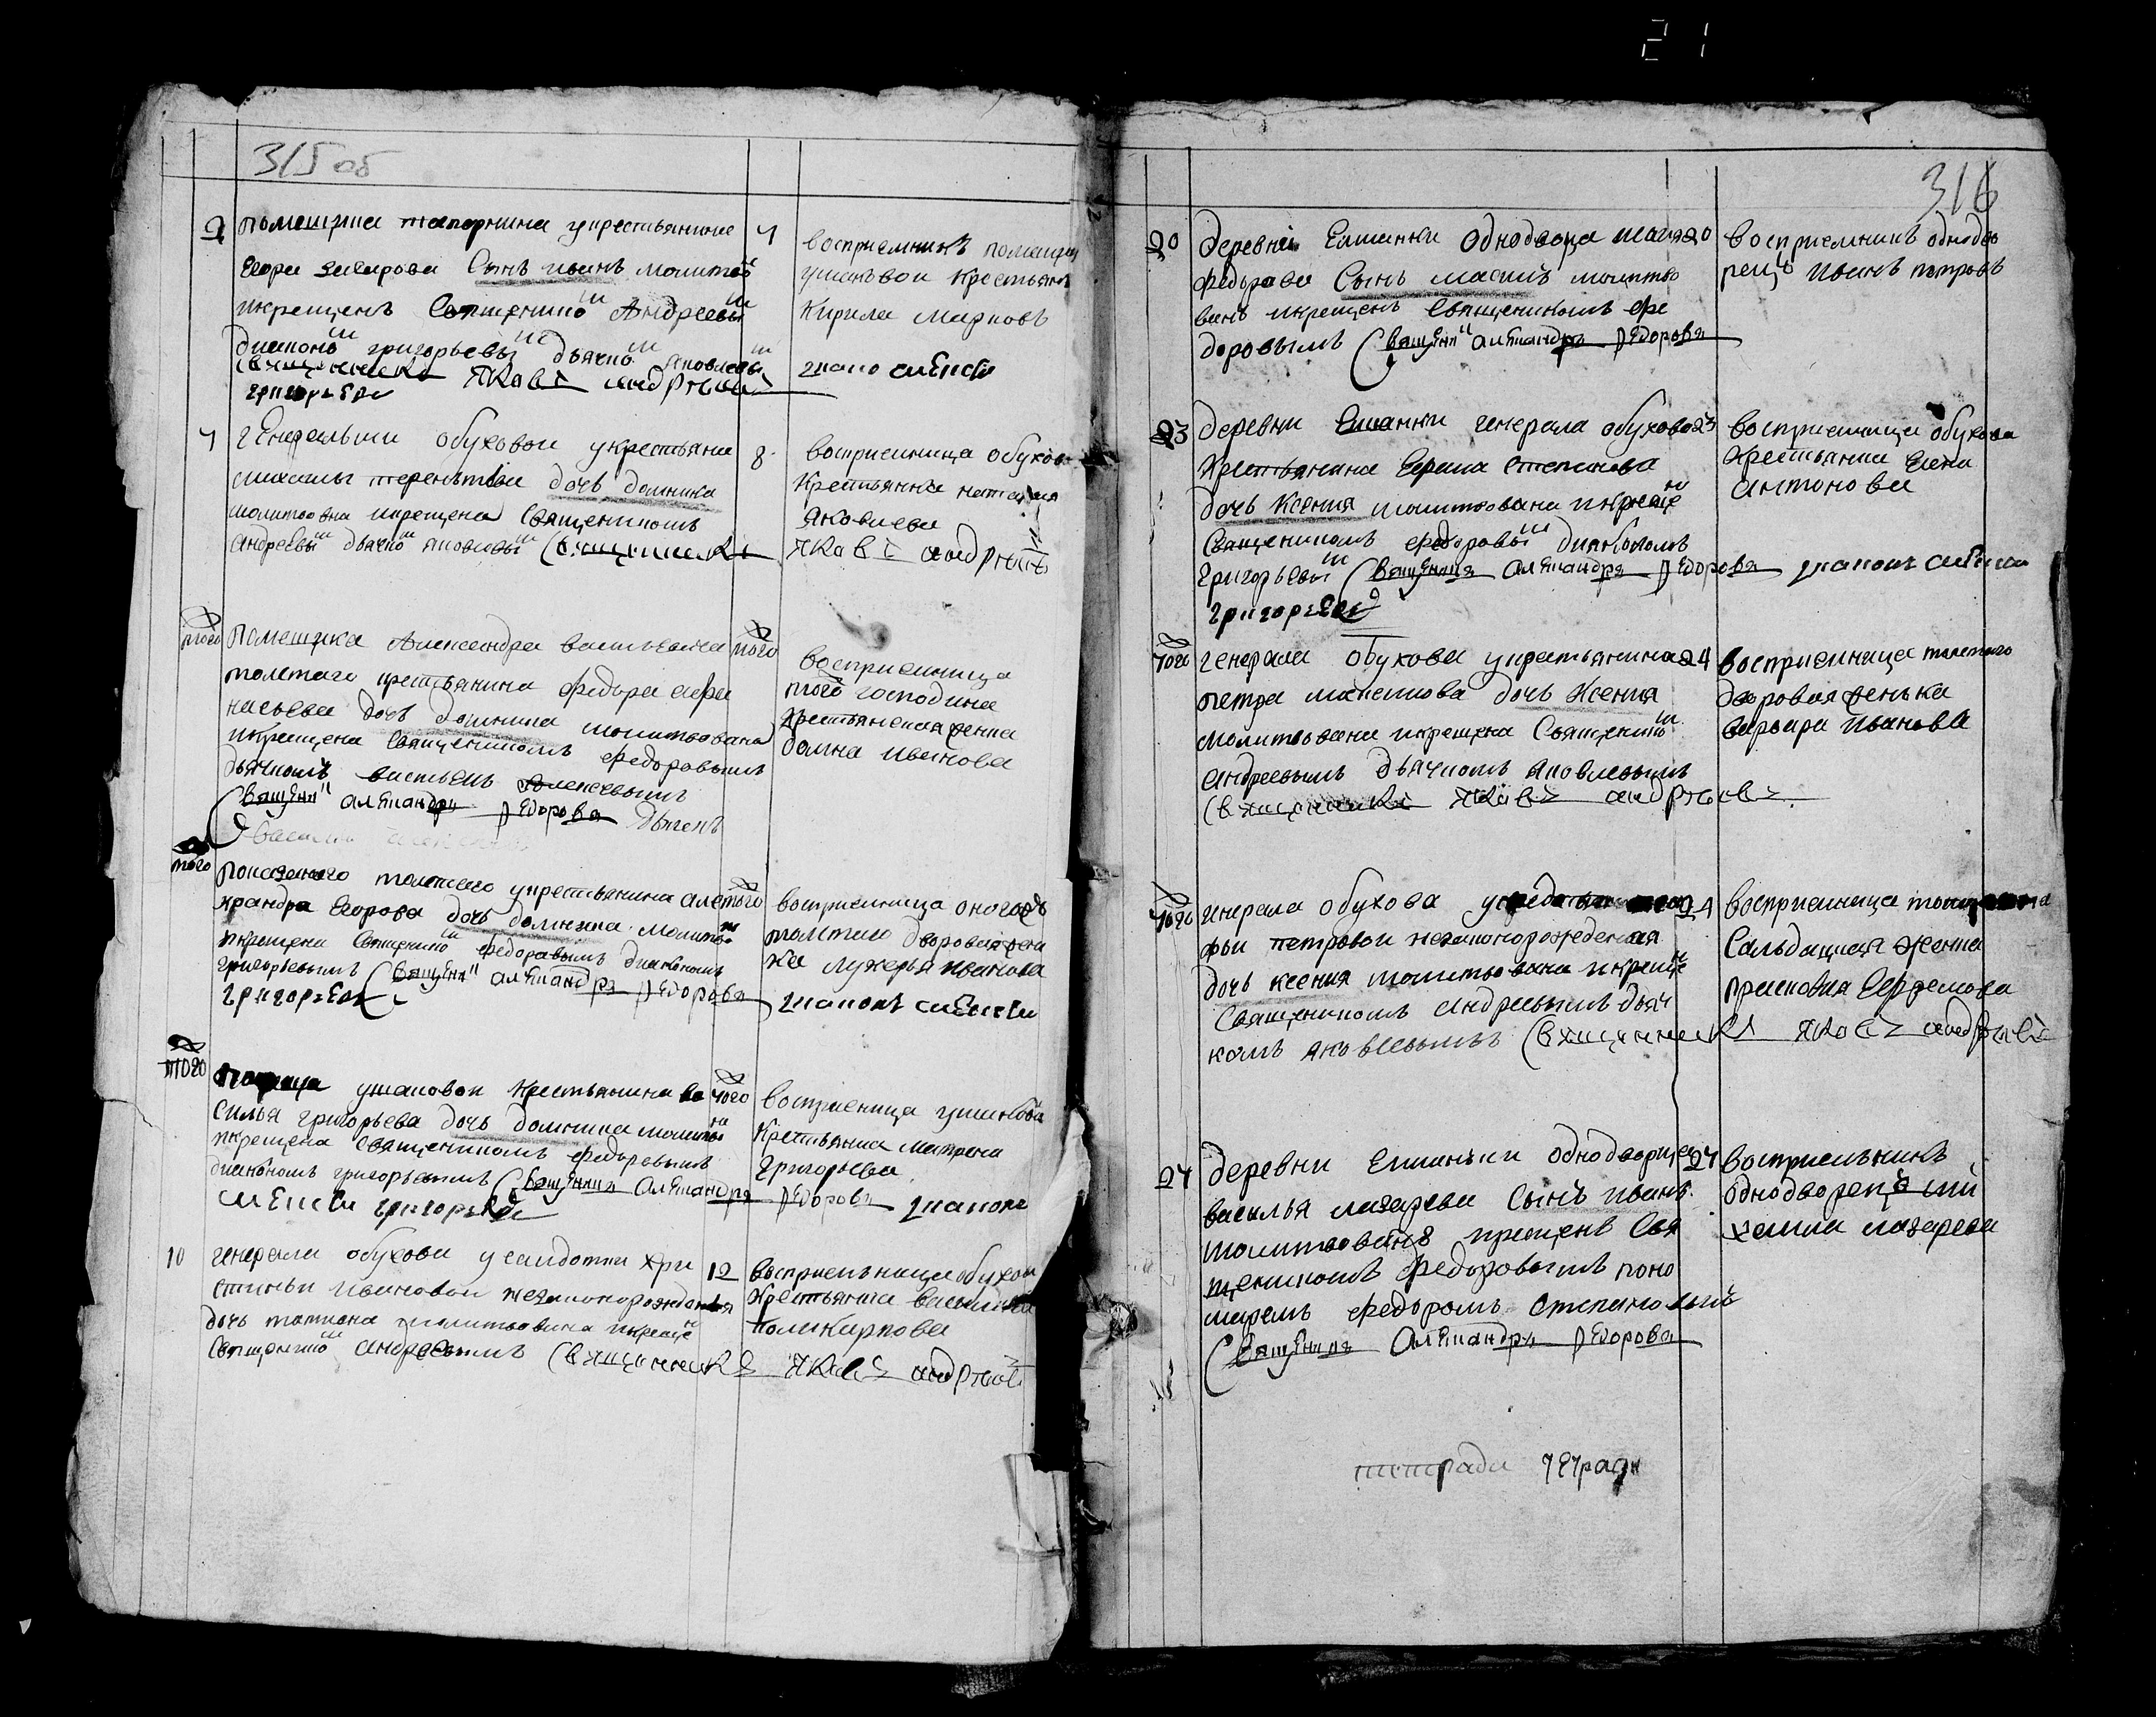 21
315 об
2 помещика тапорнина у крестьянина 4
Егора Сынъ иванъ молитв
икрещенъ Священико Андреевы
диакономъ григорьевы дьячко яковлевы
Священникъ Яковъ андреевъ
григорьевъ
восприемникъ помещи
ушаковои крестьянинъ
Кирила Марковъ
диаконъ алексеи
7 генеральши обуховои у крестьянина 8
михаилы терентьева дочь домника
молитвована икрещена Священикомъ
андреевы дьячко яковлевы Священникъ
восприемница обухов
Крестьянка наталья
яковлева
Яковъ андреевъ
того помещика Александра васильевича того
толстаго крестьянина федора афа
насьева дочь домника молитвована
икрещена Священикомъ федоровымъ
дьячкомъ васильемъ алексеевымъ
Священникъ александръ федоровъ дьячекъ
восприемница
того господина
крестьянская женка
домна иванова
того показаного толстого у крестьянина але того
ксандра Егорова дочь домника молитвов
икрещена Священико федоровымъ диакономъ
григорьевымъ Священникъ александръ федоровъ
григорьевъ
восприемница оного
толстого дворовая жен
ка лукерья иванова
диаконъ алексеи
того ушаковои крестьянина ва того
силья григорьева дочь домника молитв
икрещена Священикомъ федоровымъ
диакономъ григорьевымъ Священникъ Александръ федоровъ диаконъ
алексеи григорьевъ
восприемница ушакова
Крестьянка матрена
григорьева
10 генерала обухова у салдатки хри 12
стиньи ивановои незаконорожденная
дочь татиана молитвована икреще
Священико андреевымъ Священникъ Яковъ андреевъ
восприемница обухова
Крестьянка
поликарпова
316
20 деревни Ешанки однодворца 20
федорова Сынъ молитво
ванъ икрещенъ Священикомъ фе
доровымъ Священникъ александръ федоровъ
восприемникъ однодво
рецъ иванъ петровъ
23 деревни Ешанки генерала обухова 23
крестьянина степанова
дочь Ксения молитвована икреще
Священикомъ федоровы диакономъ
григорьевы Священникъ александръ федоровъ диаконъ алексеи
григорьевъ
восприемница обухова
крестьянка елена
антонова
того генерала обухова у крестьянина 24
петра дочь Ксения
молитвована икрещена Священико
андреевымъ дьячкомъ яковлевымъ
Священникъ Яковъ андреевъ
восприемница толстого
дворовая женька
варвара иванова
того генерала обухова 24
петровои незаконорожденная
дочь ксения молитвована икреще
Священикомъ андреевымъ дьяч
комъ яковлевымъ Священникъ Яковъ андреевъ
восприемница
Салдацкая женка
прасковия
27 деревни Ешаньки однодворца 27
василья лазарева Сынъ иванъ
молитвованъ икрещенъ Свя
щеникомъ федоровымъ поно
маремъ федоромъ степановымъ
Священникъ Александръ федоровъ
восприемьникъ
однодворецъ
лазарева
тетради